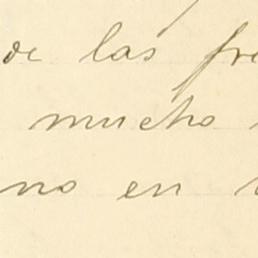 de las fre
mucho
no en